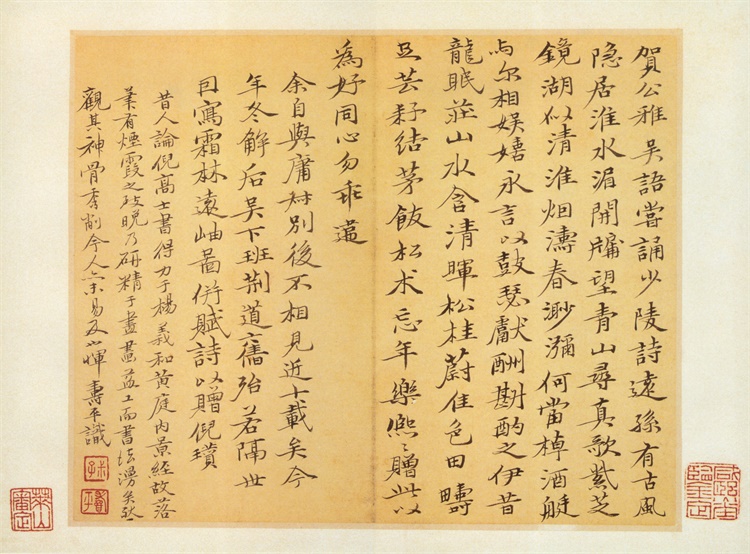 賀公雅吳語嘗誦少陵詩遠孫有古風
隐居淮水湄開牖望青山尋真歌紫芝
鏡湖似清淮烟濤春渺瀰何當棹酒艇
与尔相娱嬉永言以鼓瑟獻酬斟酌之伊昔
龍眠莊山水含清暉松桂蔚佳色田疇
且芸耔結茅飯松术忘年樂熙〻贈此以
為好同心勿乖違
余自與庸材別後不相見近十載矣今
年冬解后吳下班荆道舊殆若隔世
因寫霜林遠岫圖併賦詩以贈倪瓚
昔人論倪高士書得力于楊羲和黄庭内景經故落
筆有煙霞之致晚乃研精于畫畫益工而書法漫矣然
觀其神骨秀削今人未易及也惲壽平識
壽平